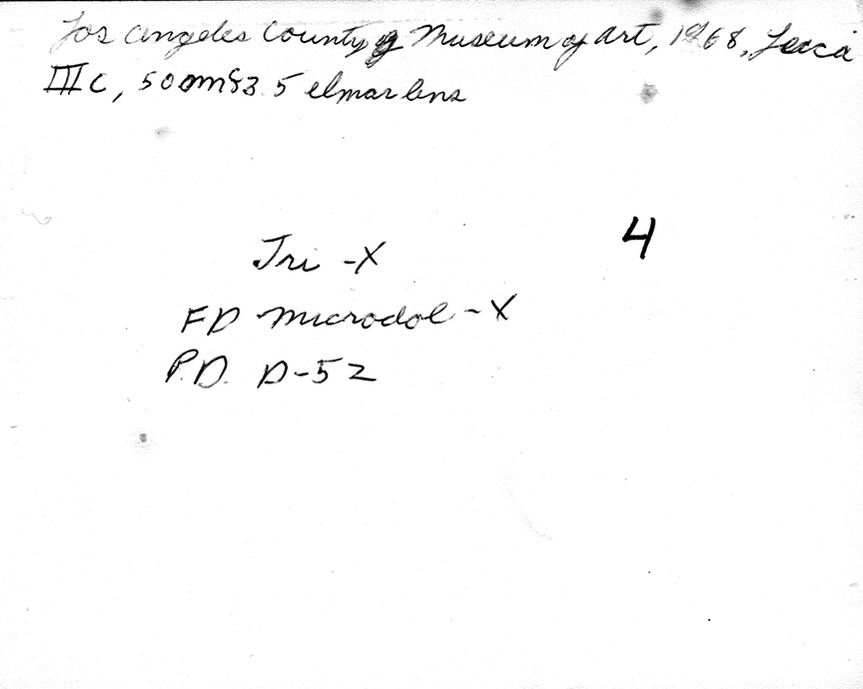 Los Angeles County Museum of Art, 1968, Leica
IIIC, 50mm f3.5 elmar lens
4
Tri-X
FD Microdol-X
P.D. D-52